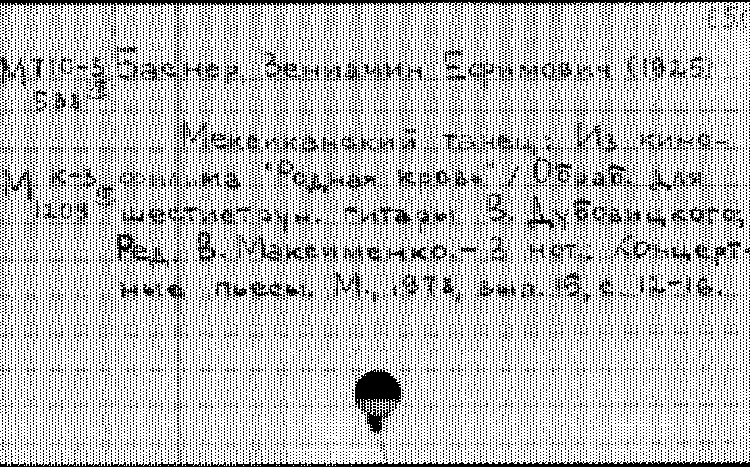 Баснер Вениамин Ефимович (1925
Мексиканский танец: Из кино-
М К-3 фильма "Родная кровь" / Обраб. для
1109 шестиструн. гитары В. Дубовицкого,
Ред. В. Максименко. - 2 нот. Концерт-
ные пьесы. М., 1978, вып. 16, с. 12-16.